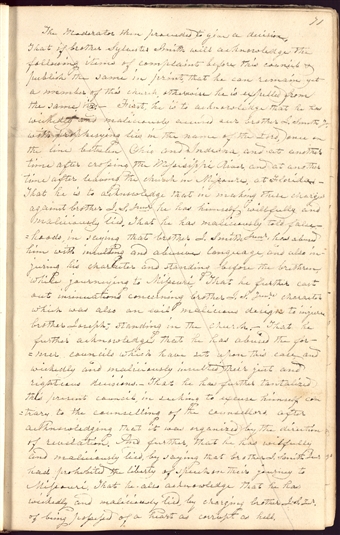 71
The Moderator then proceeded to give a decision,
That if brother Sylvester Smith will acknowledge the
following items of complaint before this council &
publish the same in print that he can remain yet
a member of this church, otherwise he is expelled from
the same First, he is to acknowledge that he has
wickedly and maliciously accused our brother J. Smith, Jr.
with prophesying lies in the name of the Lord, once on
the line between Ohio and Indiana and at another
time after crossing the Mississippi River, and at another
time after leaving the church in Missouri, at Florida.—
That he is to acknowledge that in making these charges
against brother J. S. Junr. he has himself willfully and
maliciously lied, That he has maliciously told false-
hoods, in saying that brother J. Smith Junr. has abused
him with insulting and abusive language, and also in-
juring his character and standing before the brethren
while journeying to Missouri. That he further cast
out insinuations concerning brother J. S. Junr. character
which was also an evil malicious design to injure
brother Joseph's standing in the church,— That he
further acknowledge that he has abused the for-
mer councils which have sat upon this case, and
wickedly and maliciously insulted their just and
righteous decisions.— That he has further tantalized
this present council, in seeking to excuse himself con-
trary to the councilling of the councellors after
acknowledging that it was organized by the direction
of revelation, And further, that he has willfully
and maliciously lied, by saying that brother J. Smith Junr.
had prohibited the liberty of speech on their journey to
Missouri. That he also acknowledge that he has
wickedly and maliciously lied, by charging brother J. S. Jr.
of being possessed of a heart as corrupt as hell.